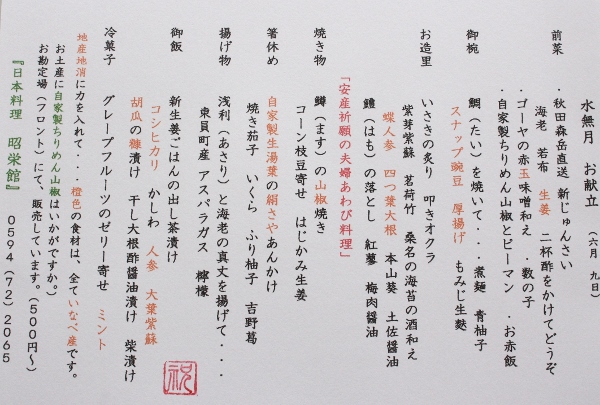 水無月　お献立　（六月　九日）
前菜　・秋田森岳直送　新じゅんさい
海老　若布　生姜　二杯酢をかけてどうぞ
・ゴーヤの赤玉味噌和え　・数の子
・自家製ちりめん山椒とピーマン　・お赤飯
御椀　鯛（たい）を焼いて・・・煮麺　青柚子
スナップ豌豆　厚揚げ　もみじ生麩
お造里　いさきの炙り　叩きオクラ
紫芽紫蘇　茗荷竹　桑名の海苔の酒和え
蝶人参　四つ葉大根　本山葵　土佐醤油
鱧（はも）の落とし　紅蓼　梅肉醤油
「安産祈願の夫婦あわび料理」
焼き物　鱒（ます）の山椒焼き
コーン枝豆寄せ　はじかみ生姜
箸休め　自家製生湯葉の絹さやあんかけ
焼き茄子　いくら　ふり柚子　吉野葛
揚げ物　浅利（あさり）と海老の真丈を揚げて・・・
東員町産　アスパラガス　檸檬
御飯　新生姜ごはんの出し茶漬け
コシヒカリ　かしわ　人参　大葉紫蘇
胡瓜の糠漬け　干し大根酢醤油漬け　柴漬け
冷菓子　グレープフルーツのゼリー寄せ　ミント
地産地消に力を入れて・・・橙色の食材は、全ていなべ産です。
お土産に自家製ちりめん山椒はいかがですか。
お勘定場（フロント）にて、販売しています。（５００円～）
『日本料理　昭栄館』　０５９４（７２）２０６５
祝